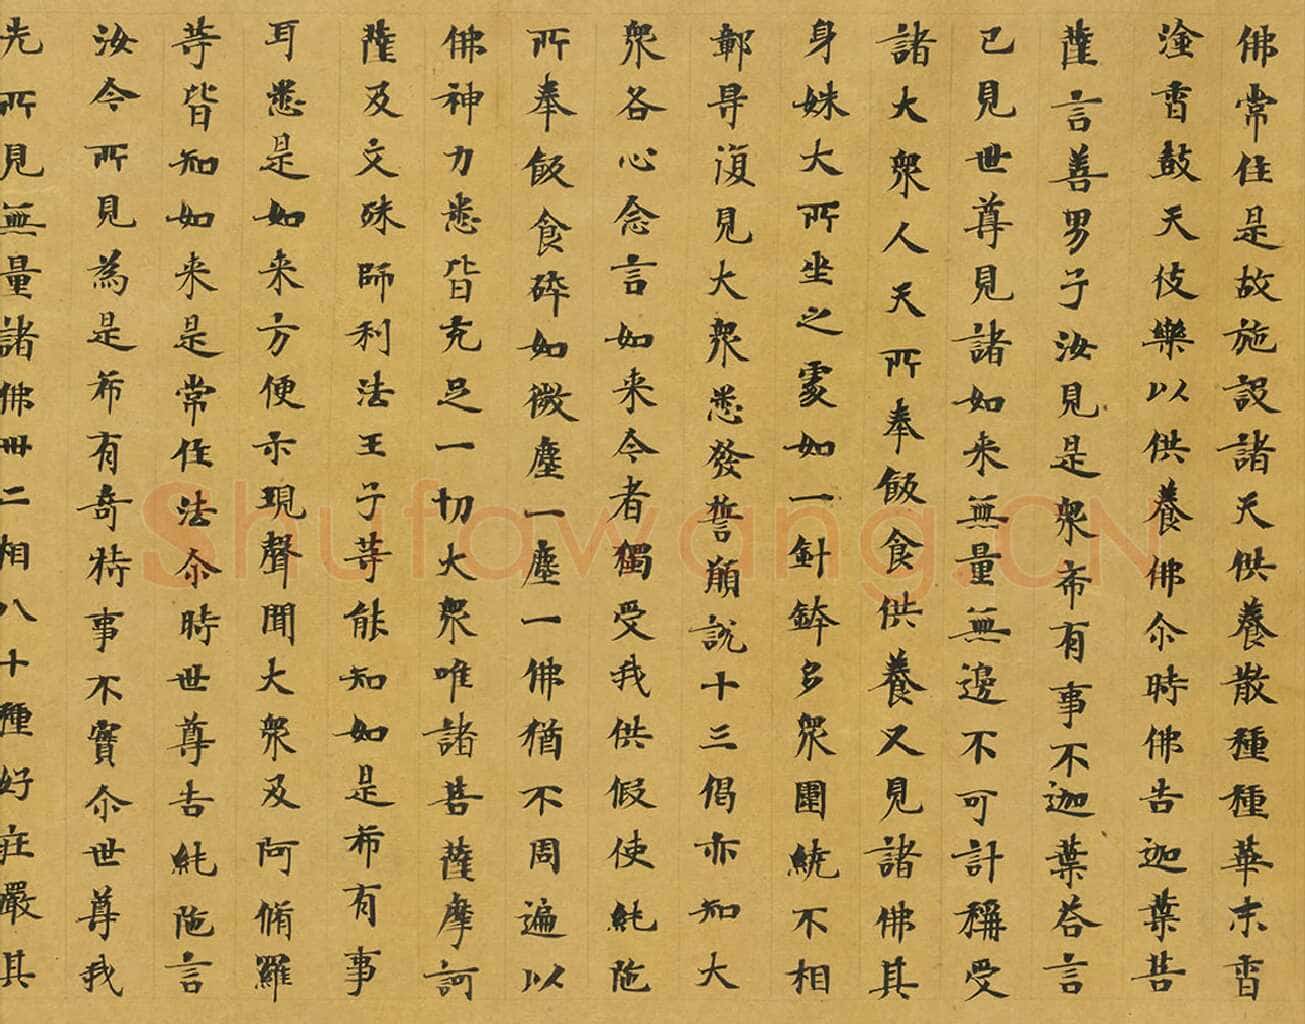 佛常住是故施設諸天供養散種種華末香
塗香鼓天伎樂以供養佛尒時佛告迦葉菩
薩言善男子汝見是衆希有事不迦葉荅言
已見世尊見諸如来無量無邊不可計稱受
諸大衆人天所奉飯食供養又見諸佛其
身姝大所坐之處如一針鉢多衆圍繞不相
鄣导復見大衆悉發誓願說十三偈亦知大
衆各心念言如来今者獨受我供假使純陁
所奉飯食碎如微塵一塵一佛猶不周遍以
佛神力悉皆充足一切大衆唯諸菩薩摩訶
薩及文殊師利法王子等能知如是希有事
耳悉是如来方便示現聲聞大衆及阿脩羅
等皆知如来是常住法尒時世尊告純陁言
汝今所見為是希有奇特事不實尒世尊我
先所見無量諸佛卅二相八十種好莊嚴其
Shufawang.CN